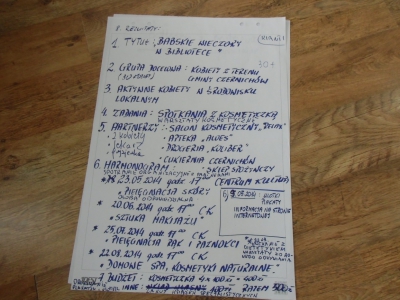 1. TYTUŁ: "BABSKIE WIECZORY
W BIBLIOTECE"
2. GRUPA DOCELOWA: KOBIETY Z TERENU
GMINY CZERNICHÓW
30+
3. AKTYWNE KOBIETY W ŚRODOWISKU
LOKALNYM
4. ZADANIA: SPOTKANIA Z KOSMETYCZKĄ
WARSZTATY KOSMETYCZNE
5. PARTNERZY: - SALON KOSMETYCZNY
- APTEKA "ALOES"
- DROGERIA "KOLIBER"
- SKLEP SPOŻYWCZY
- CUKIERNIA CZERNICHÓW
6. HARMONOGRAM:
* 23.05.2014 godz. 17⁰⁰ CENTRUM KULTURY
- PIELĘGNACJA SKÓRY
* 20.06.2014 godz. 17⁰⁰ CK
- SZTUKA MAKIJAŻU
* 25.07.2014 godz. 17⁰⁰ CK
- PIELĘGNACJA RĄK I PAZNOKCI
* 22.08.2014 godz. 17⁰⁰ CK
- DOMOWE SPA, KOSMETYKI NATURALNE
ULOTKI
PLAKATY
INFORMACJA NA STRONIE
INTERNETOWEJ
7. BUDŻET: KOSMETYCZKA 4 x 100 zł = 400 zł
INNE: 100 zł RAZEM 500 zł